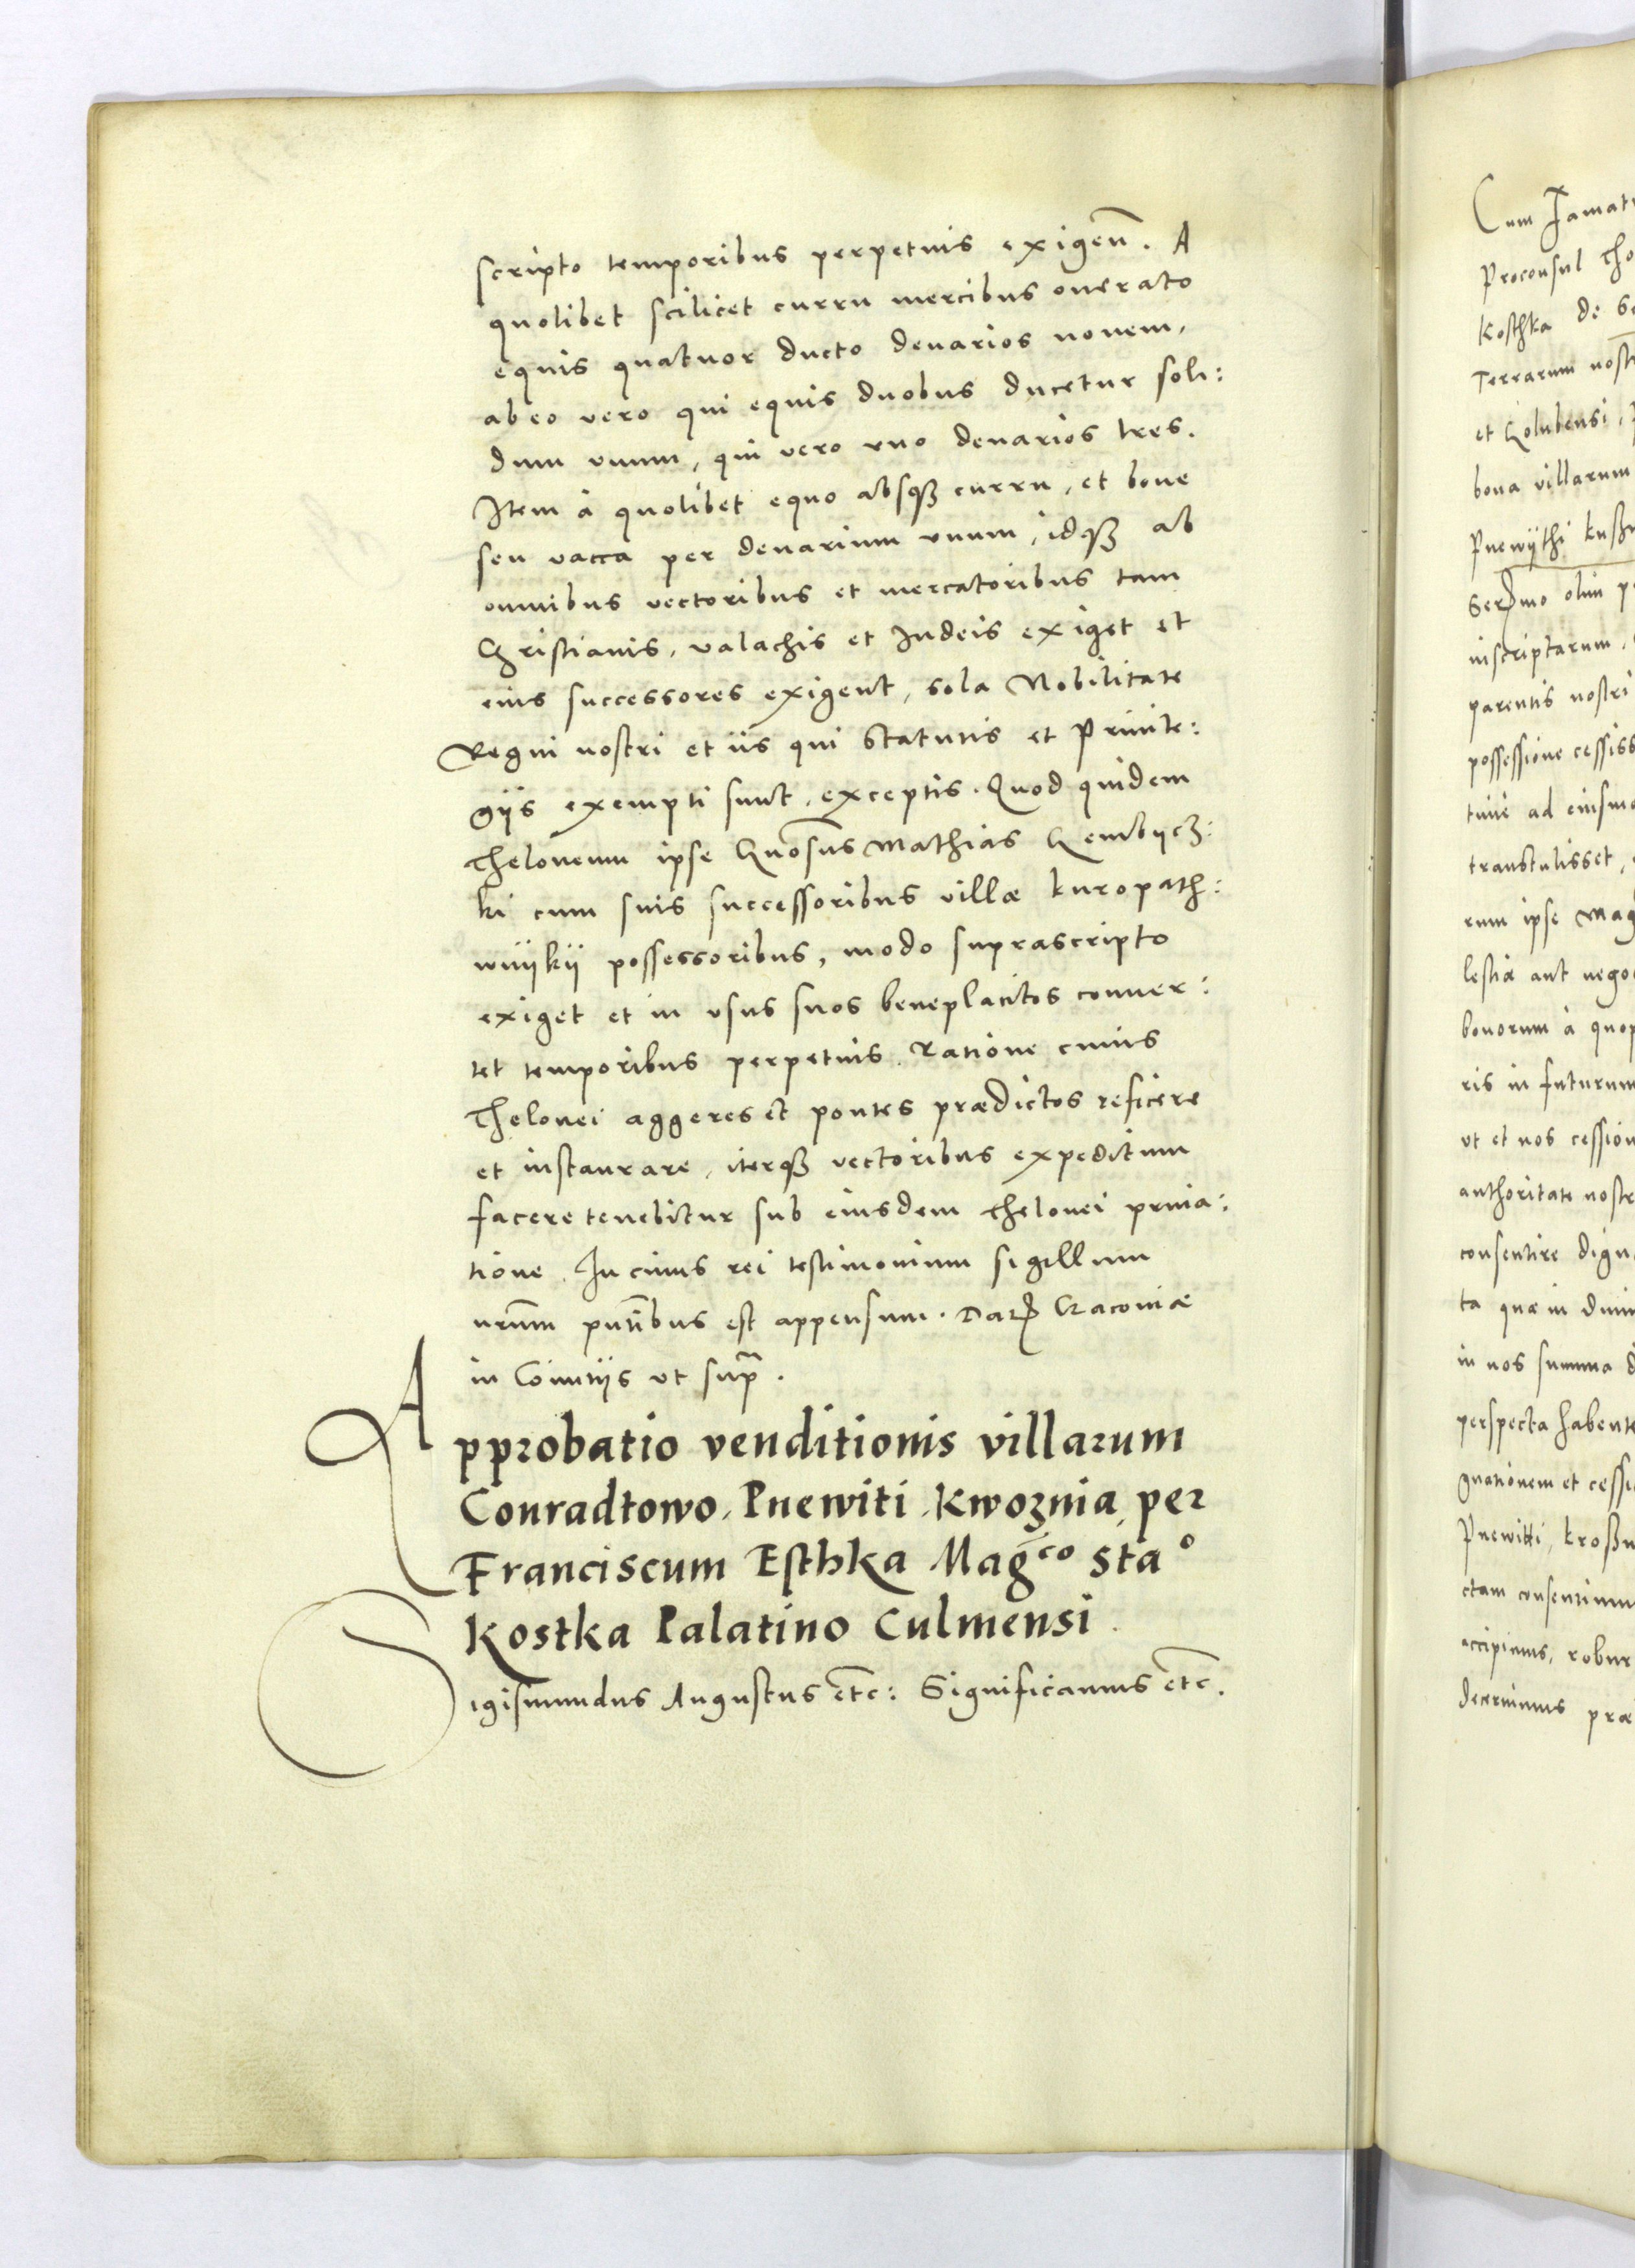 scripto temporibus perpetuis exigeñ. A
quolibet scilicet curru mercibus onerato
equis quatuor ducto denarios novem,
ab eo vero qui equis duobus ducetur soli:
dum unum, qui vero uno denarios tres.
Item à quolibet equo absqꝫ curru, et bove
seu vacca per denarium unum, idqꝫ ab
omnibus vectoribus et mercatoribus tam
Christianis, valachis et Judeis exiget et
eius successores exigent, sola Nobilitate
Regni nostri et iis qui Statutis et Privile:
giis exempti sunt, exceptis. Quod quidem
Theloneum ipse Gñosus Mathias Gembiycz:
ki cum suis successoribus villæ kuropath:
wiiykii possessoribus, modo suprascripto
exiget et in usus suos beneplacitos conver:
tet temporibus perpetuis. Ratione cuius
Thelonei aggeres et pontes prædictos reficere
et instaurare, iterqꝫ vectoribus expeditum
facere tenebitur sub eiusdem Thelonei priva:
tione. In cuius rei testimonium sigillum
nr̃um pñtibus est appensum. Datꝭ Cracoviæ
in Comitiis ut supᷓ.
Approbatio venditionis villarum
Conradtowo, Pnewiti, Kwoznia, per
Franciscum Esthka Mag^co Sta^o
Kostka Palatino Culmensi.
Sigismundus Augustus etc: Significamus etc.
Cum
Proconsul Tho
Kosthka de
Terrarum nostr
et Golubensi,
bona villarum
Pnewythi
Serᵐᵒ olim
inscriptarum,
parentis nostri
possessione cessiss
ad eiusmo
transtulisset,
rum ipse Mag
lestiæ aut nego
bonorum à quop
ris in futurum
ut et nos cession
authoritate nostr
consentire dign
ta quæ in
in nos summa
perspecta habente
gnationem et cessi
Pnewitti, kroßn
ctam consentimu
accipimus, robur
decernimus præ